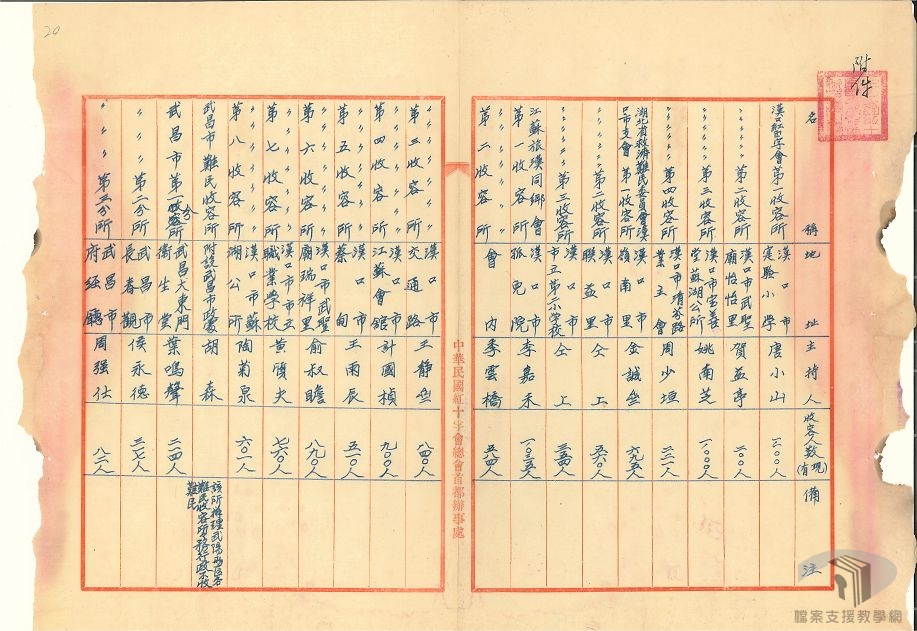 附件
名稱 地址 主持人 收容人數(現有) 備注
漢口紅卍字會第一收容所 漢口市寔驗小學 唐小山 一二〇〇人
〃〃〃〃〃第二收容所 漢口市武聖廟怡怡里 賀益亭 二〇〇人
〃〃〃〃〃第三收容所 漢口市寶善堂蘇湖公所 姚南芝 一〇〇〇人
〃〃〃〃〃第四收容所 漢口市清芬路業主會 周少垣 三二一人
湖北省救濟難民委員會漢口市支會第一收容所 漢口市嶺南里 金誠生 六九五人
〃〃〃〃〃第二收容所 聯益里 仝上 五六〇人
〃〃〃〃〃第三收容所 市立第二小學校 仝上 三五四人
江蘇旅漢同鄉會第一收容所 漢口市孤兒院 李嘉禾 一〇三五人
第二收容所 會內 季雲橋 五四人
中華民國紅十字會總會首都辦事處
〃〃〃第三收容所 漢口市交通路 王靜
〃〃〃第四收容所 漢口市江蘇會館 計國楨 九〇〇人
〃〃〃第五收容所 漢口市蔡甸 王雨辰 五一〇人
〃〃〃第六收容所 漢口市武聖廟瑞祥里 俞叔瞻 八九〇人
〃〃〃第七收容所 漢口市市立職業學校 黃贋夫 七六〇人
〃〃〃第八收容所 漢口市蘇湖公所 陶菊泉 六〇一人
武昌市難民收容所 附設武昌市政處 胡森 該所辦理武陽兩區各難民收容所務行政不收難民
武昌市第一分所 武昌大東門衛生堂 葉鳴聲 二四人
〃〃〃第二分所 武昌市長春觀 侯永德 三七人
〃〃〃第三分所 武昌市府經廳 周強仕 八二人
20
檔案支援教學網